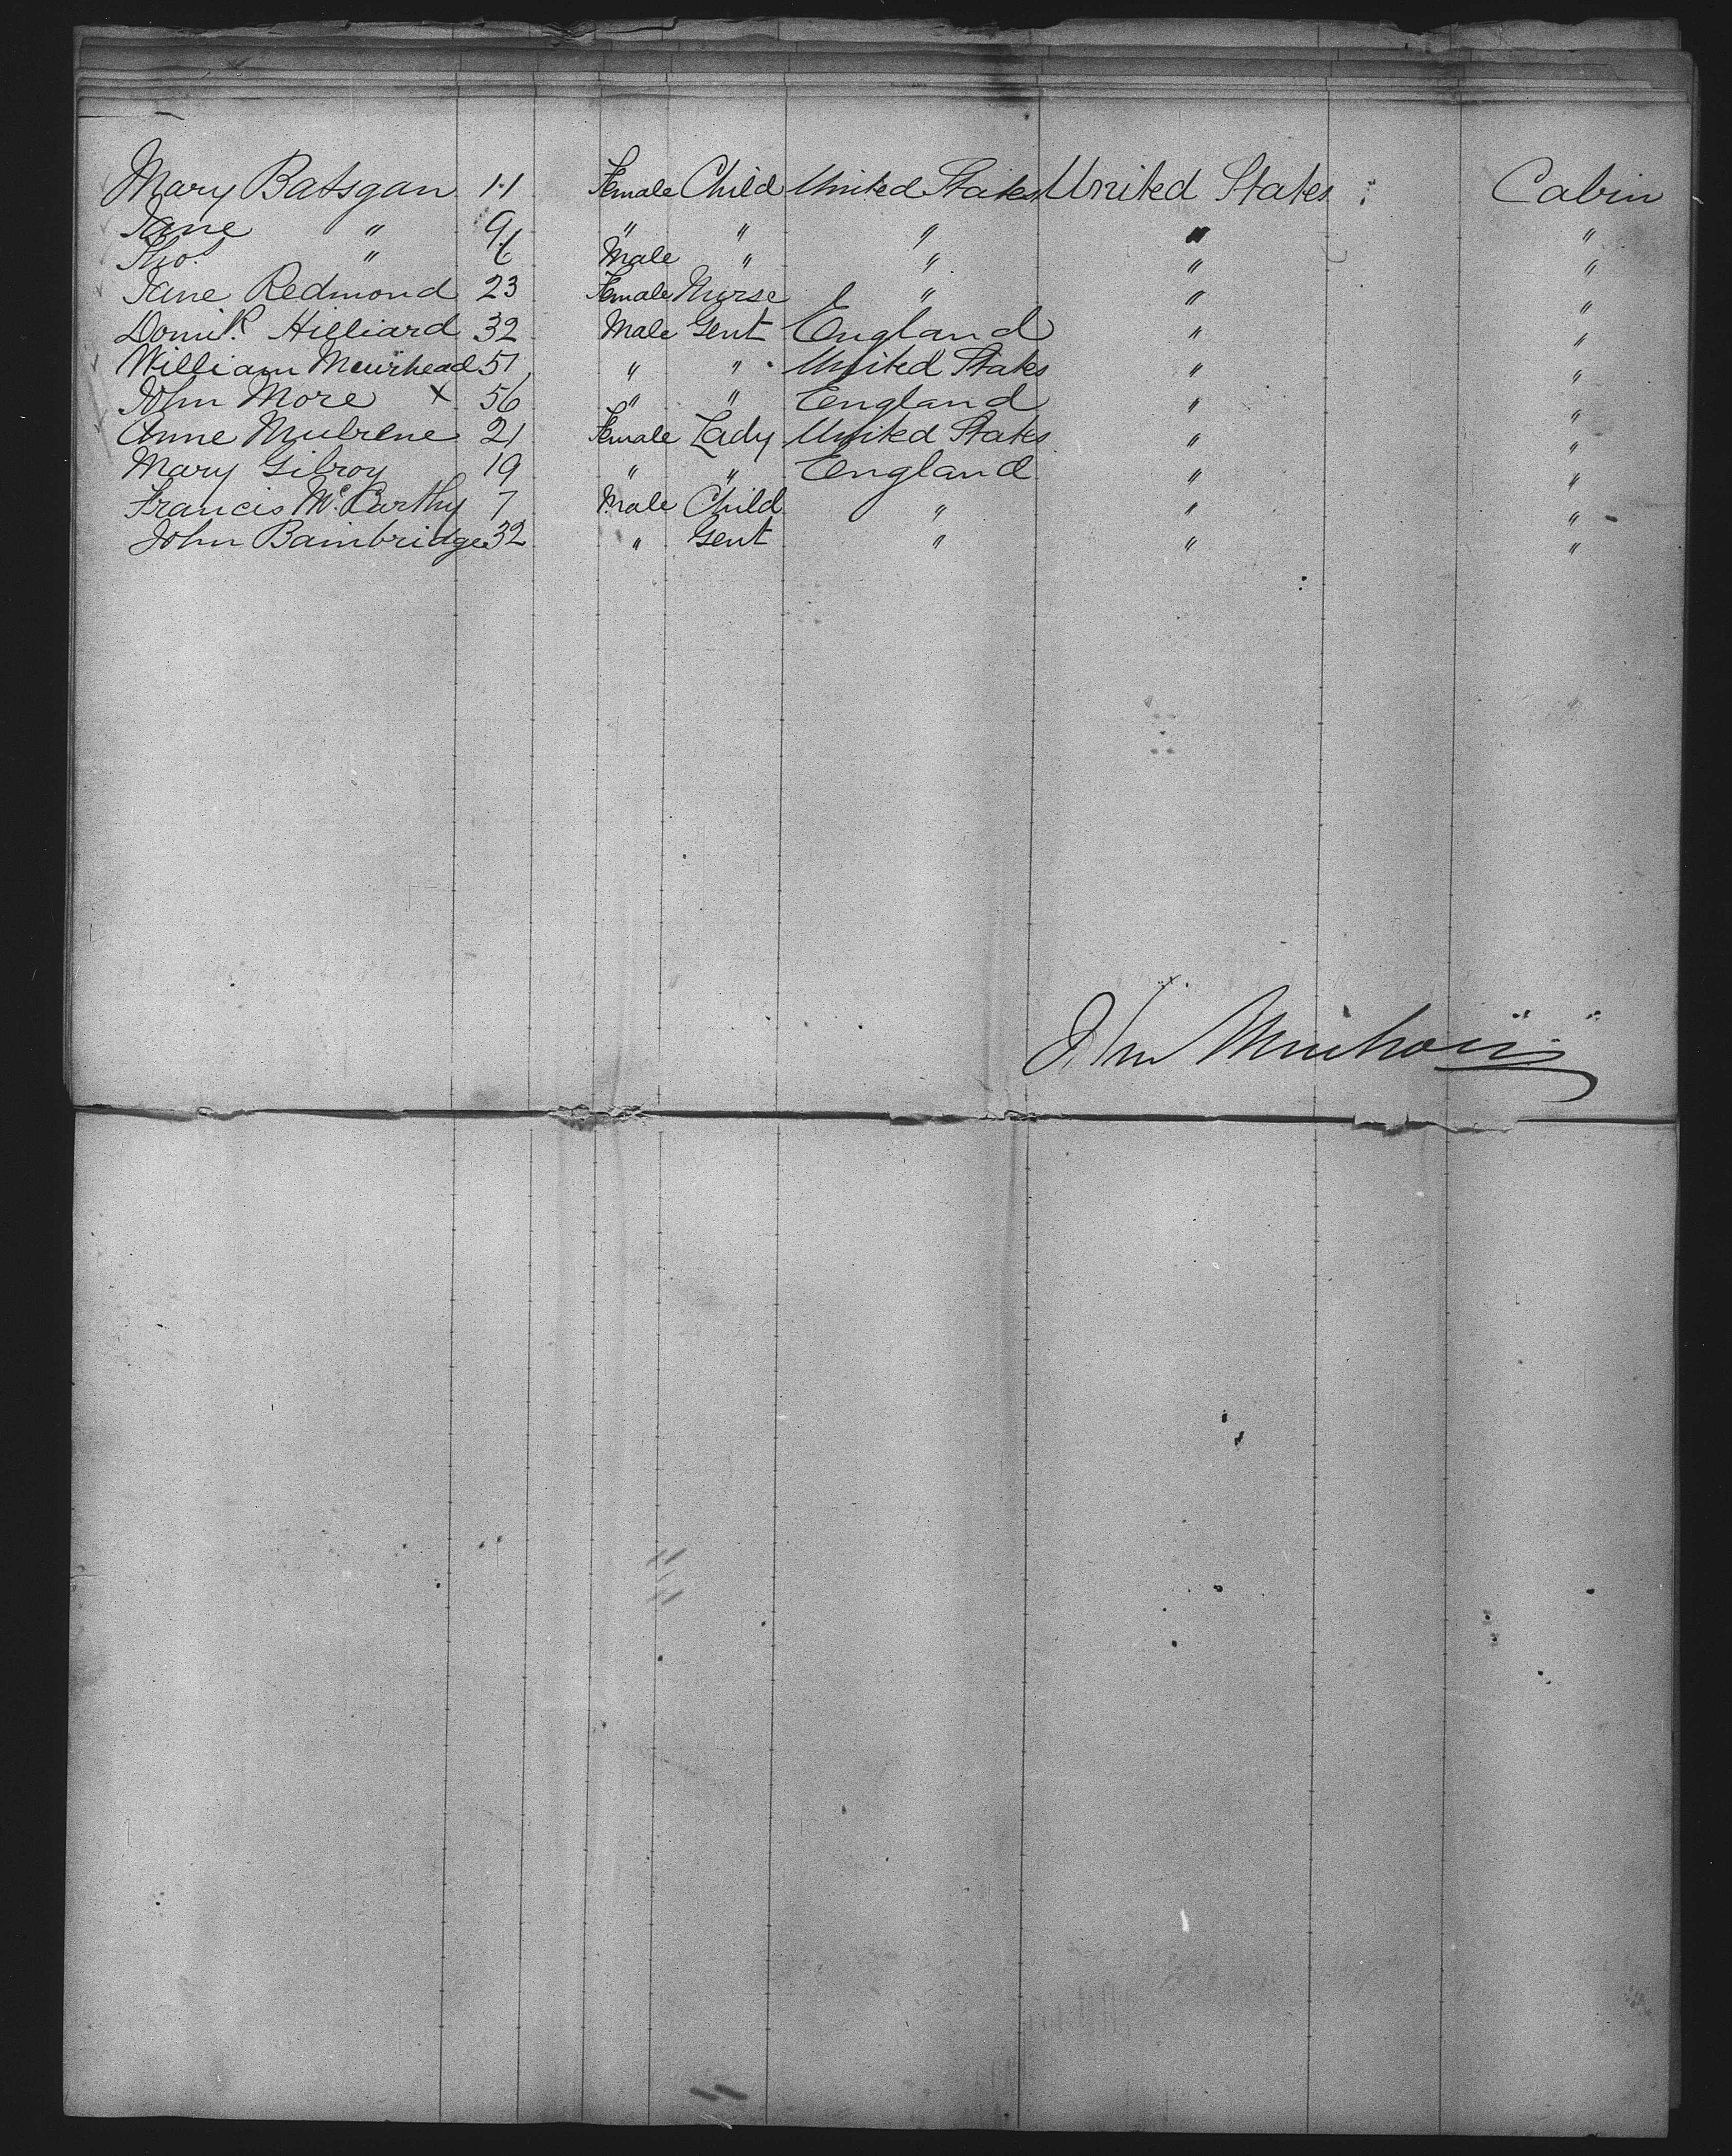 Mary Batsgan 11 Female Child United States United States Cabin
Jane " 9 " " " " "
Thos. " 6 Male " " " "
Jane Redmond 23 Female Nurse " " "
Domik. Hilliard 32 Male Gent England " "
William Muirhead 51 " " United States " "
John More x 56 " " England " "
Anne Mulrene 21 Female Lady United States " "
Mary Gilroy 19 " " England " "
Francis McCarthy 7 Male Child " " "
John Bainbridge 32 " Gent " " "
John